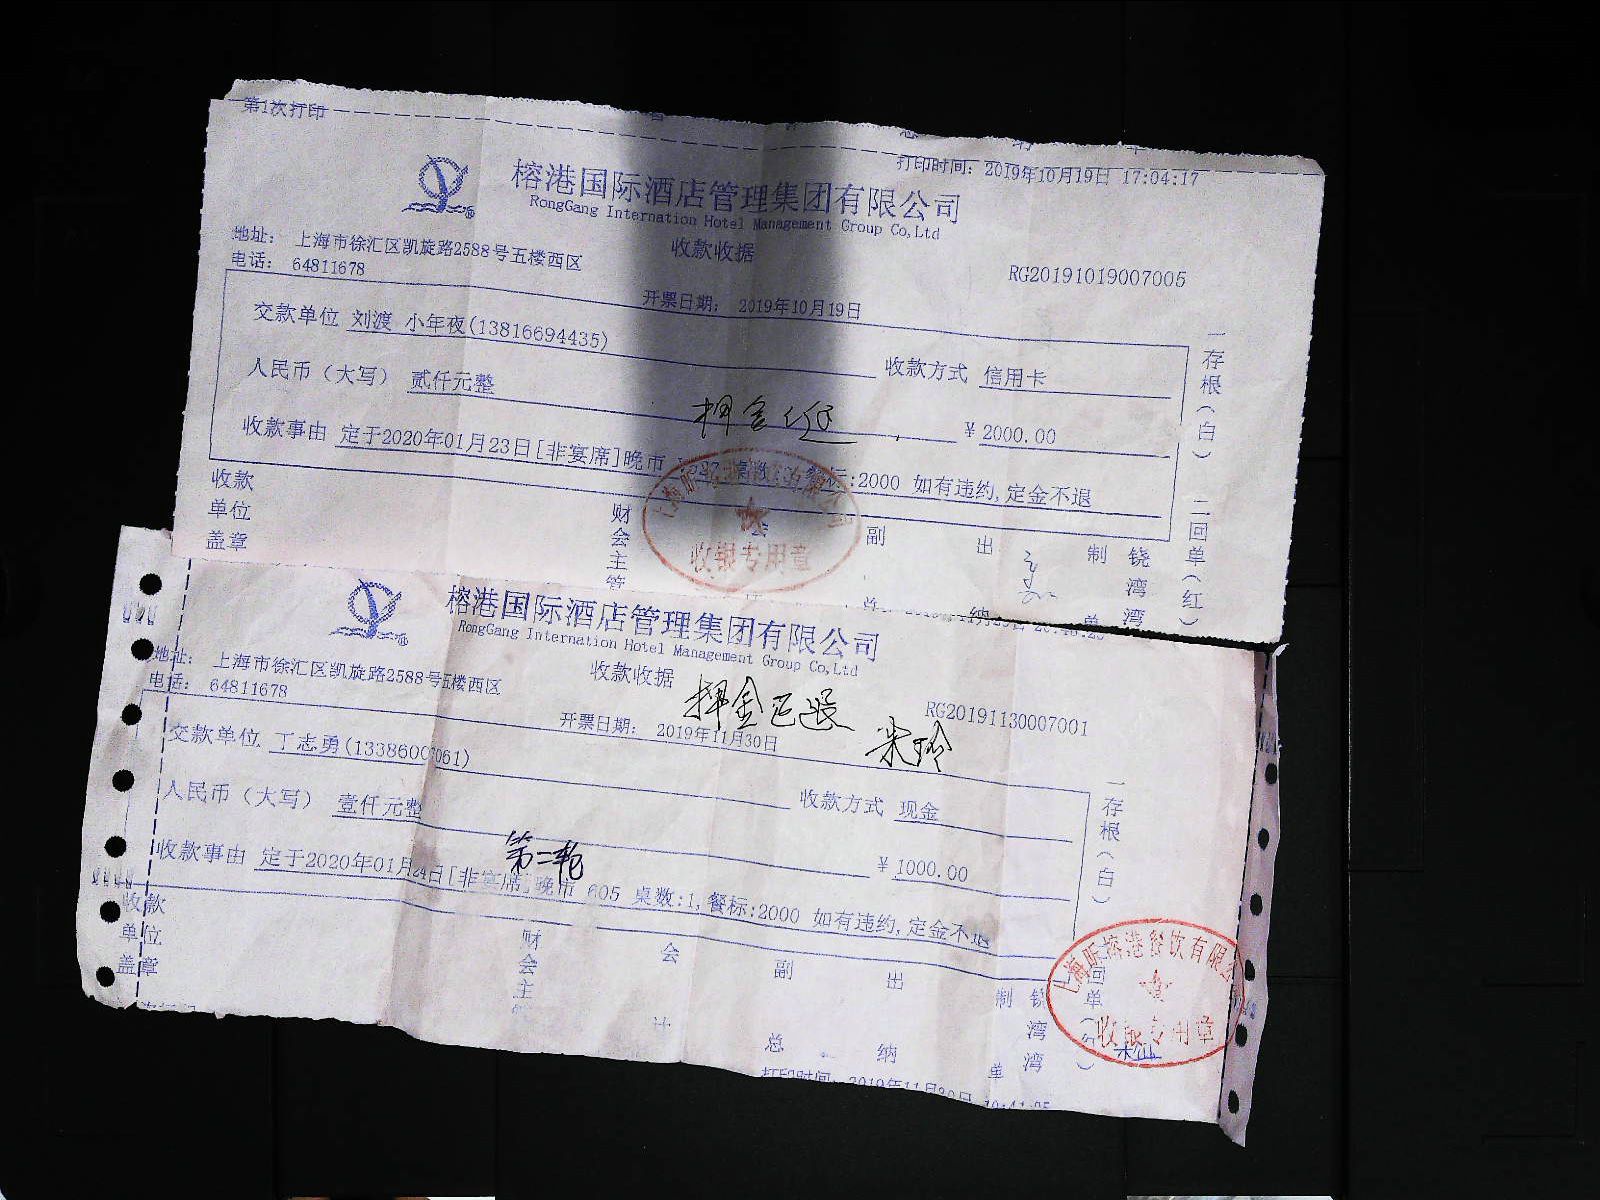 第1次打印
打印时间: 2019年10月19日 17:04:17
榕港国际酒店管理集团有限公司
RongGang Internation Hotel Management Group Co,Ltd
地址: 上海市徐汇区凯旋路2588号五楼西区
收款收据
电话: 64811678
RG20191019007005
开票日期: 2019年10月19日
交款单位 刘渡 小年夜(13816694435)
收款方式 信用卡
人民币（大写） 贰仟元整
押金已退
¥2000.00
收款事由 定于2020年01月23日[非宴席]晚市 餐标:2000 如有违约,定金不退
收款单位盖章
财会主管
会
副
出
制
饶湾湾
收银专用章
一存根(白) 二回单(红)
榕港国际酒店管理集团有限公司
RongGang Internation Hotel Management Group Co,Ltd
地址: 上海市徐汇区凯旋路2588号五楼西区
收款收据
押金已退
电话: 64811678
RG20191130007001
开票日期: 2019年11月30日
交款单位 丁志勇(1338600 061)
收款方式 现金
人民币（大写） 壹仟元整
第二轮
¥1000.00
收款事由 定于2020年01月24日[非宴席]晚市 605 桌数:1,餐标:2000 如有违约,定金不退
收款单位盖章
财会主
会
副
出
制
总
纳
单
湾湾
一存根(白)
回单
上海昕榕港餐饮有限公
收银专用章
打印时间: 2019年11月30日